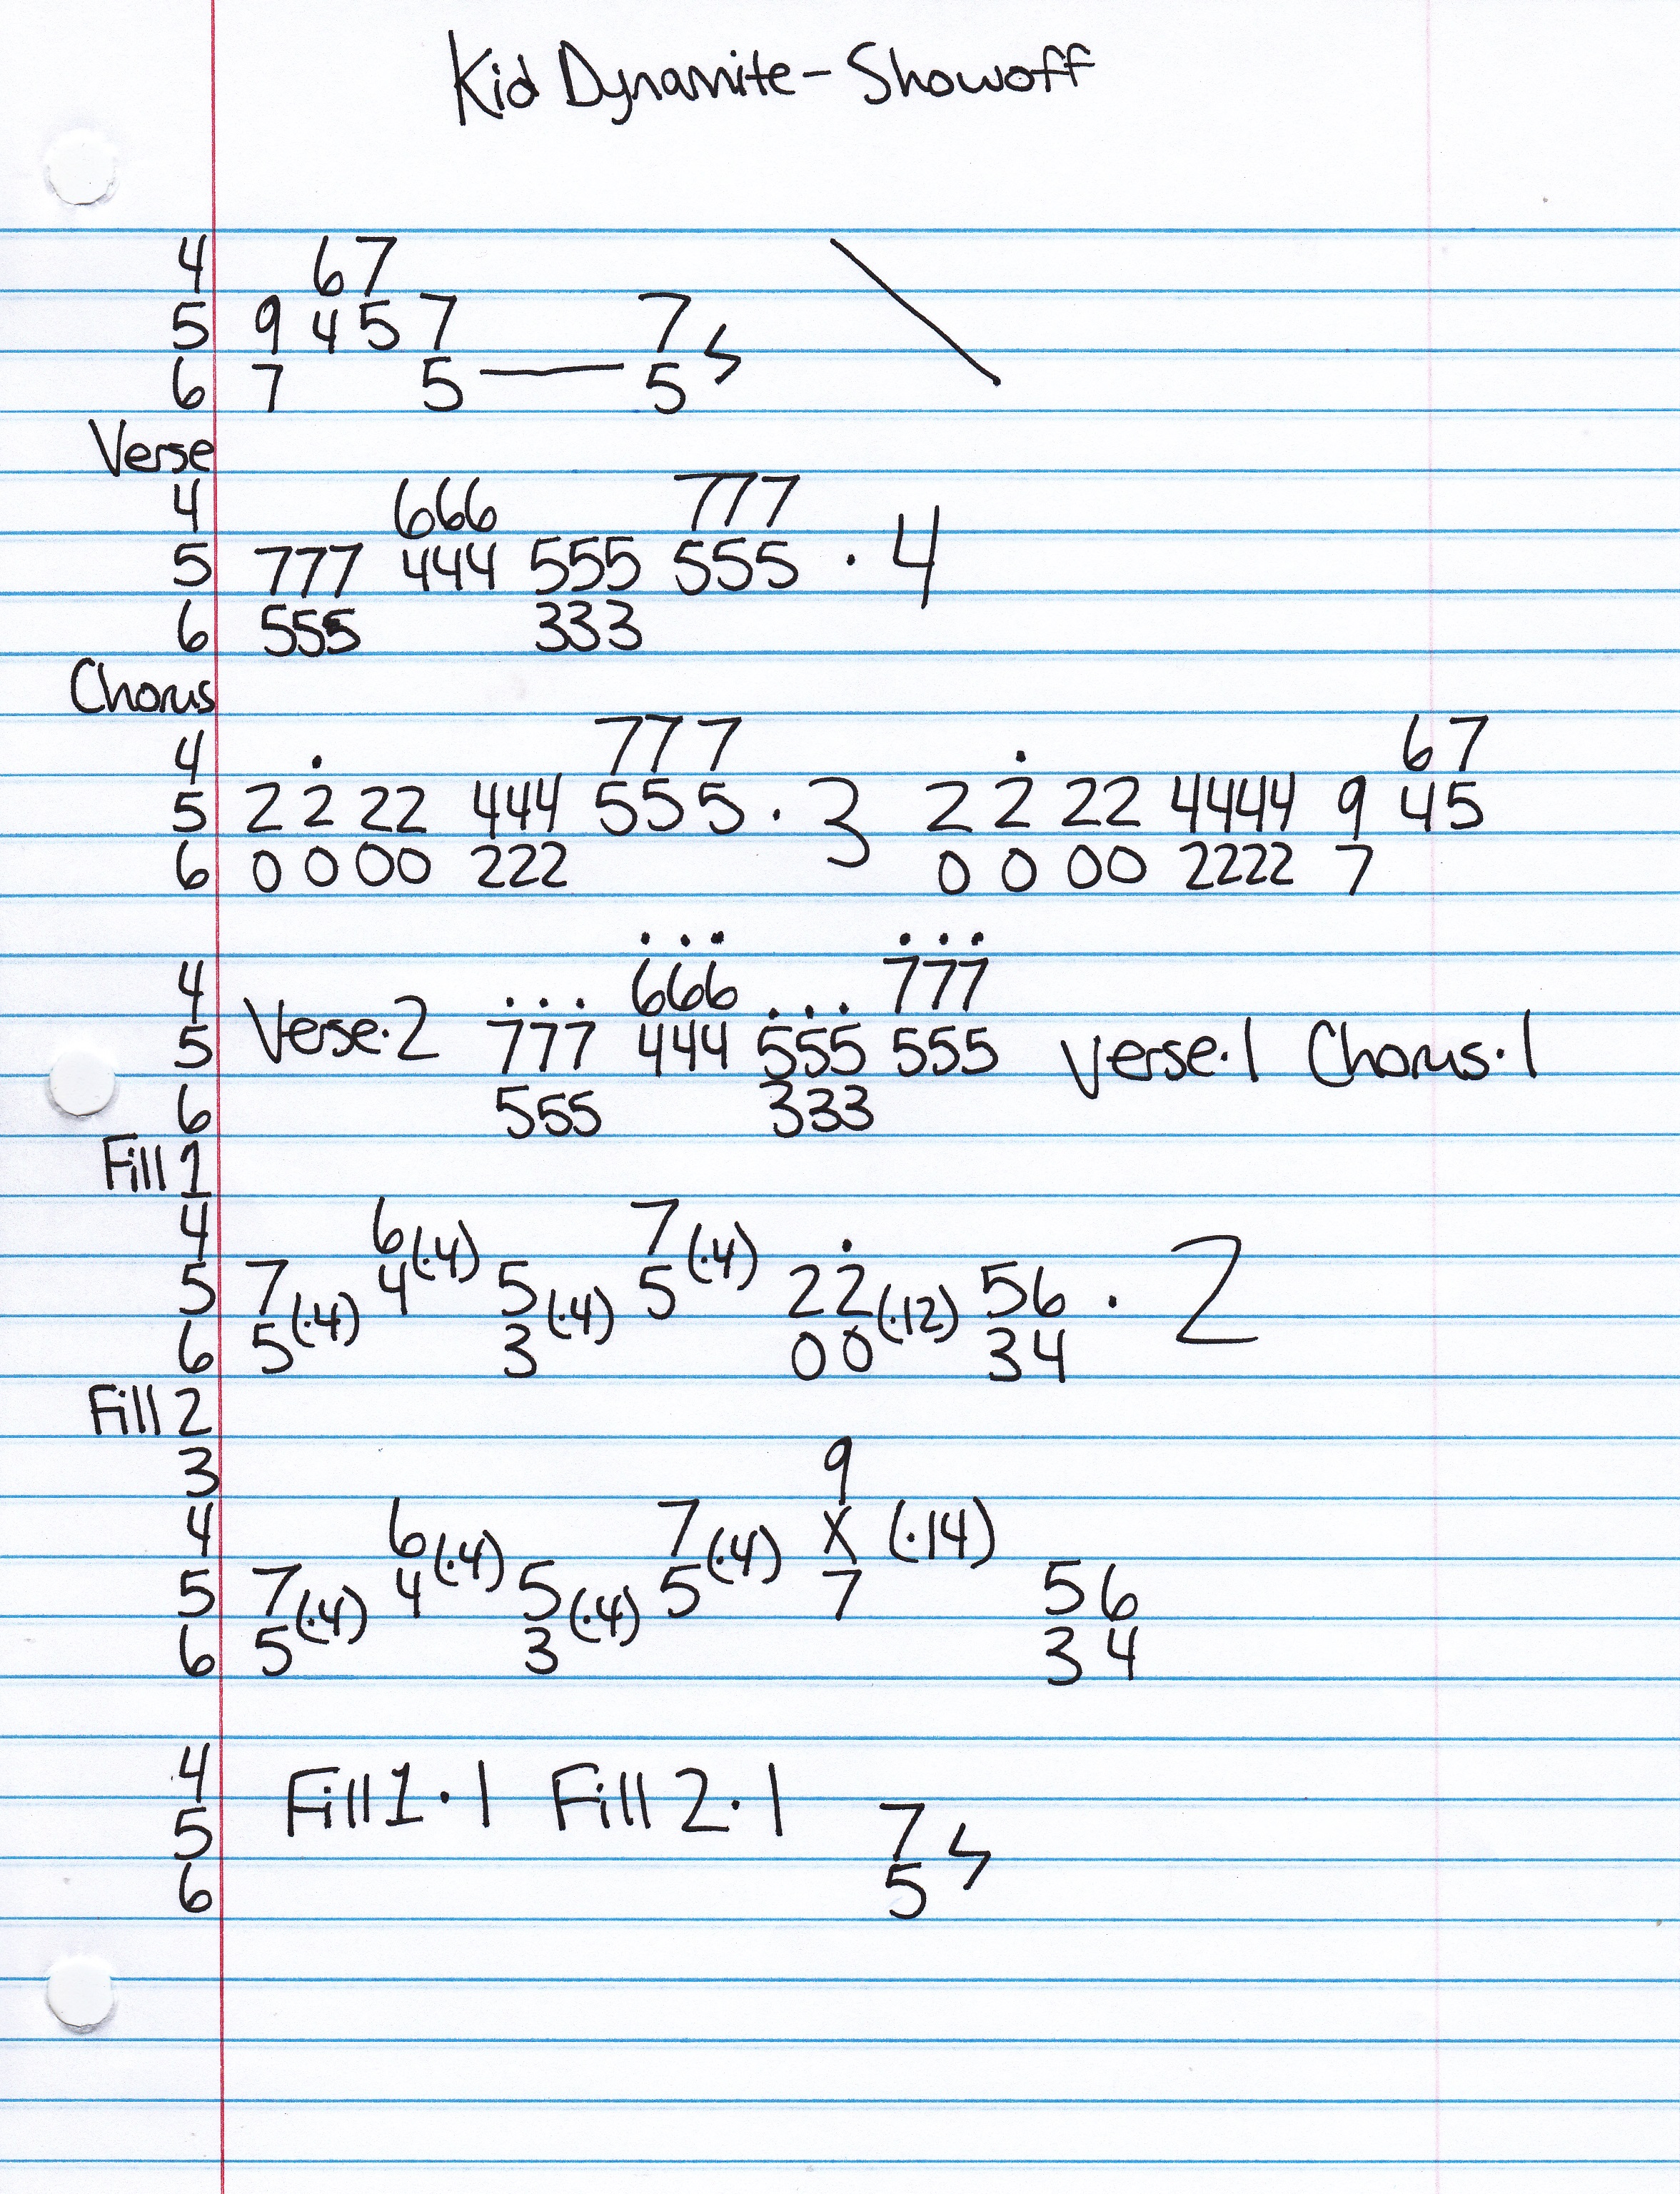 Kid Dynamite - Showoff
4 67
5 9 4 5 7 7
6 7 5 — 5
Verse
4 666 777
5 777 444 555 555 · 4
6 555 333
Chorus
4 777 67
5 2 2̇ 22 444 555 · 3 2 2̇ 22 4444 9 45
6 0 0 00 222 0 0 00 2222 7
4 6̇6̇6̇ 7̇7̇7̇
5 Verse·2 7̇7̇7̇ 444 5̇5̇5̇ 555 Verse·1 Chorus·1
6 555 333
Fill 1
4 6(·4) 7(·4)
5 7(·4) 4 5(·4) 5 22̇(·12) 56 · 2
6 5 3 00 34
Fill 2
3 9
4 6(·4) 7(·4) X (·14)
5 7(·4) 4 5(·4) 5 7 56
6 5 3 34
4 Fill 1·1 Fill 2·1
5 7
6 5